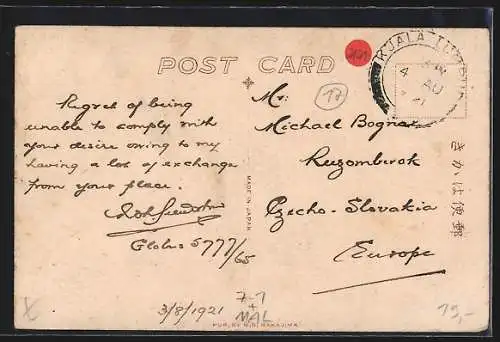 POST CARD
KUALA LUMPUR
4 AU
21
17
Regret of being
unable to comply with
your desire owing to my
having a lot of exchange
from your place.
Globus 5777/65
3/8/1921
Mr:
Michael Bognar
Ruzomberok
Czecho-Slovakia
Europe
MADE IN JAPAN
きかは便郵
7-1
+
MAL
19,-
PUB. BY N.S. NAKAJIMA